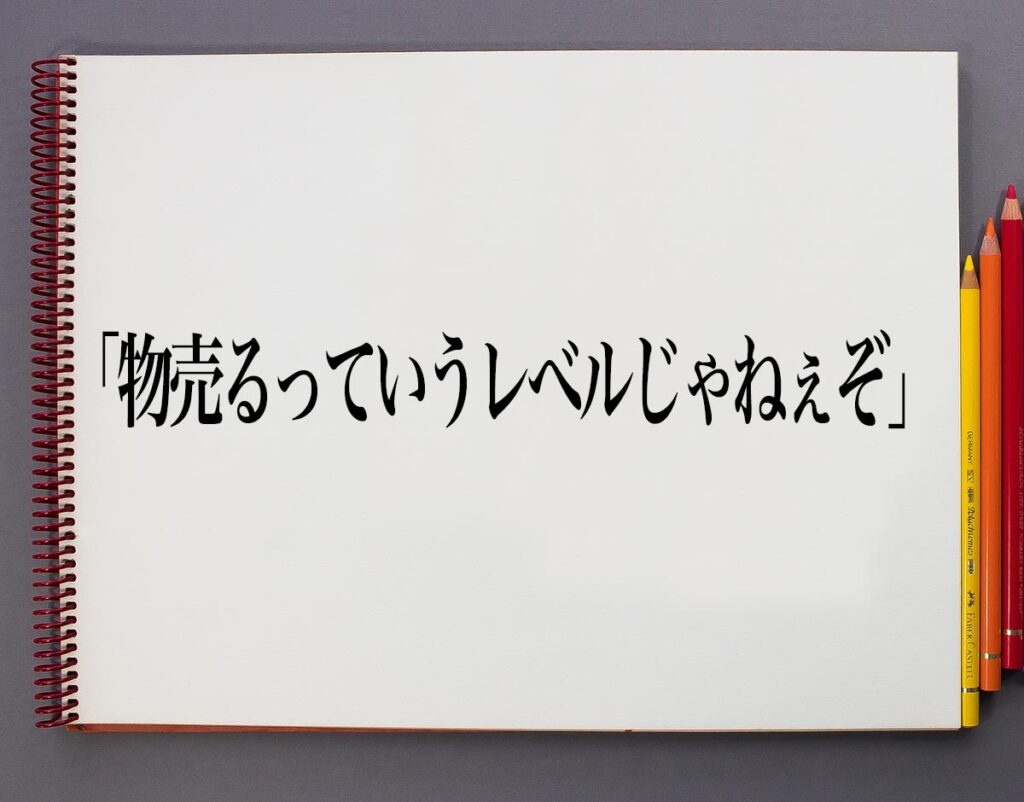 「物売るっていうレベルじゃねぇぞ」
GERMANY
Polychromos
FABER CASTELL